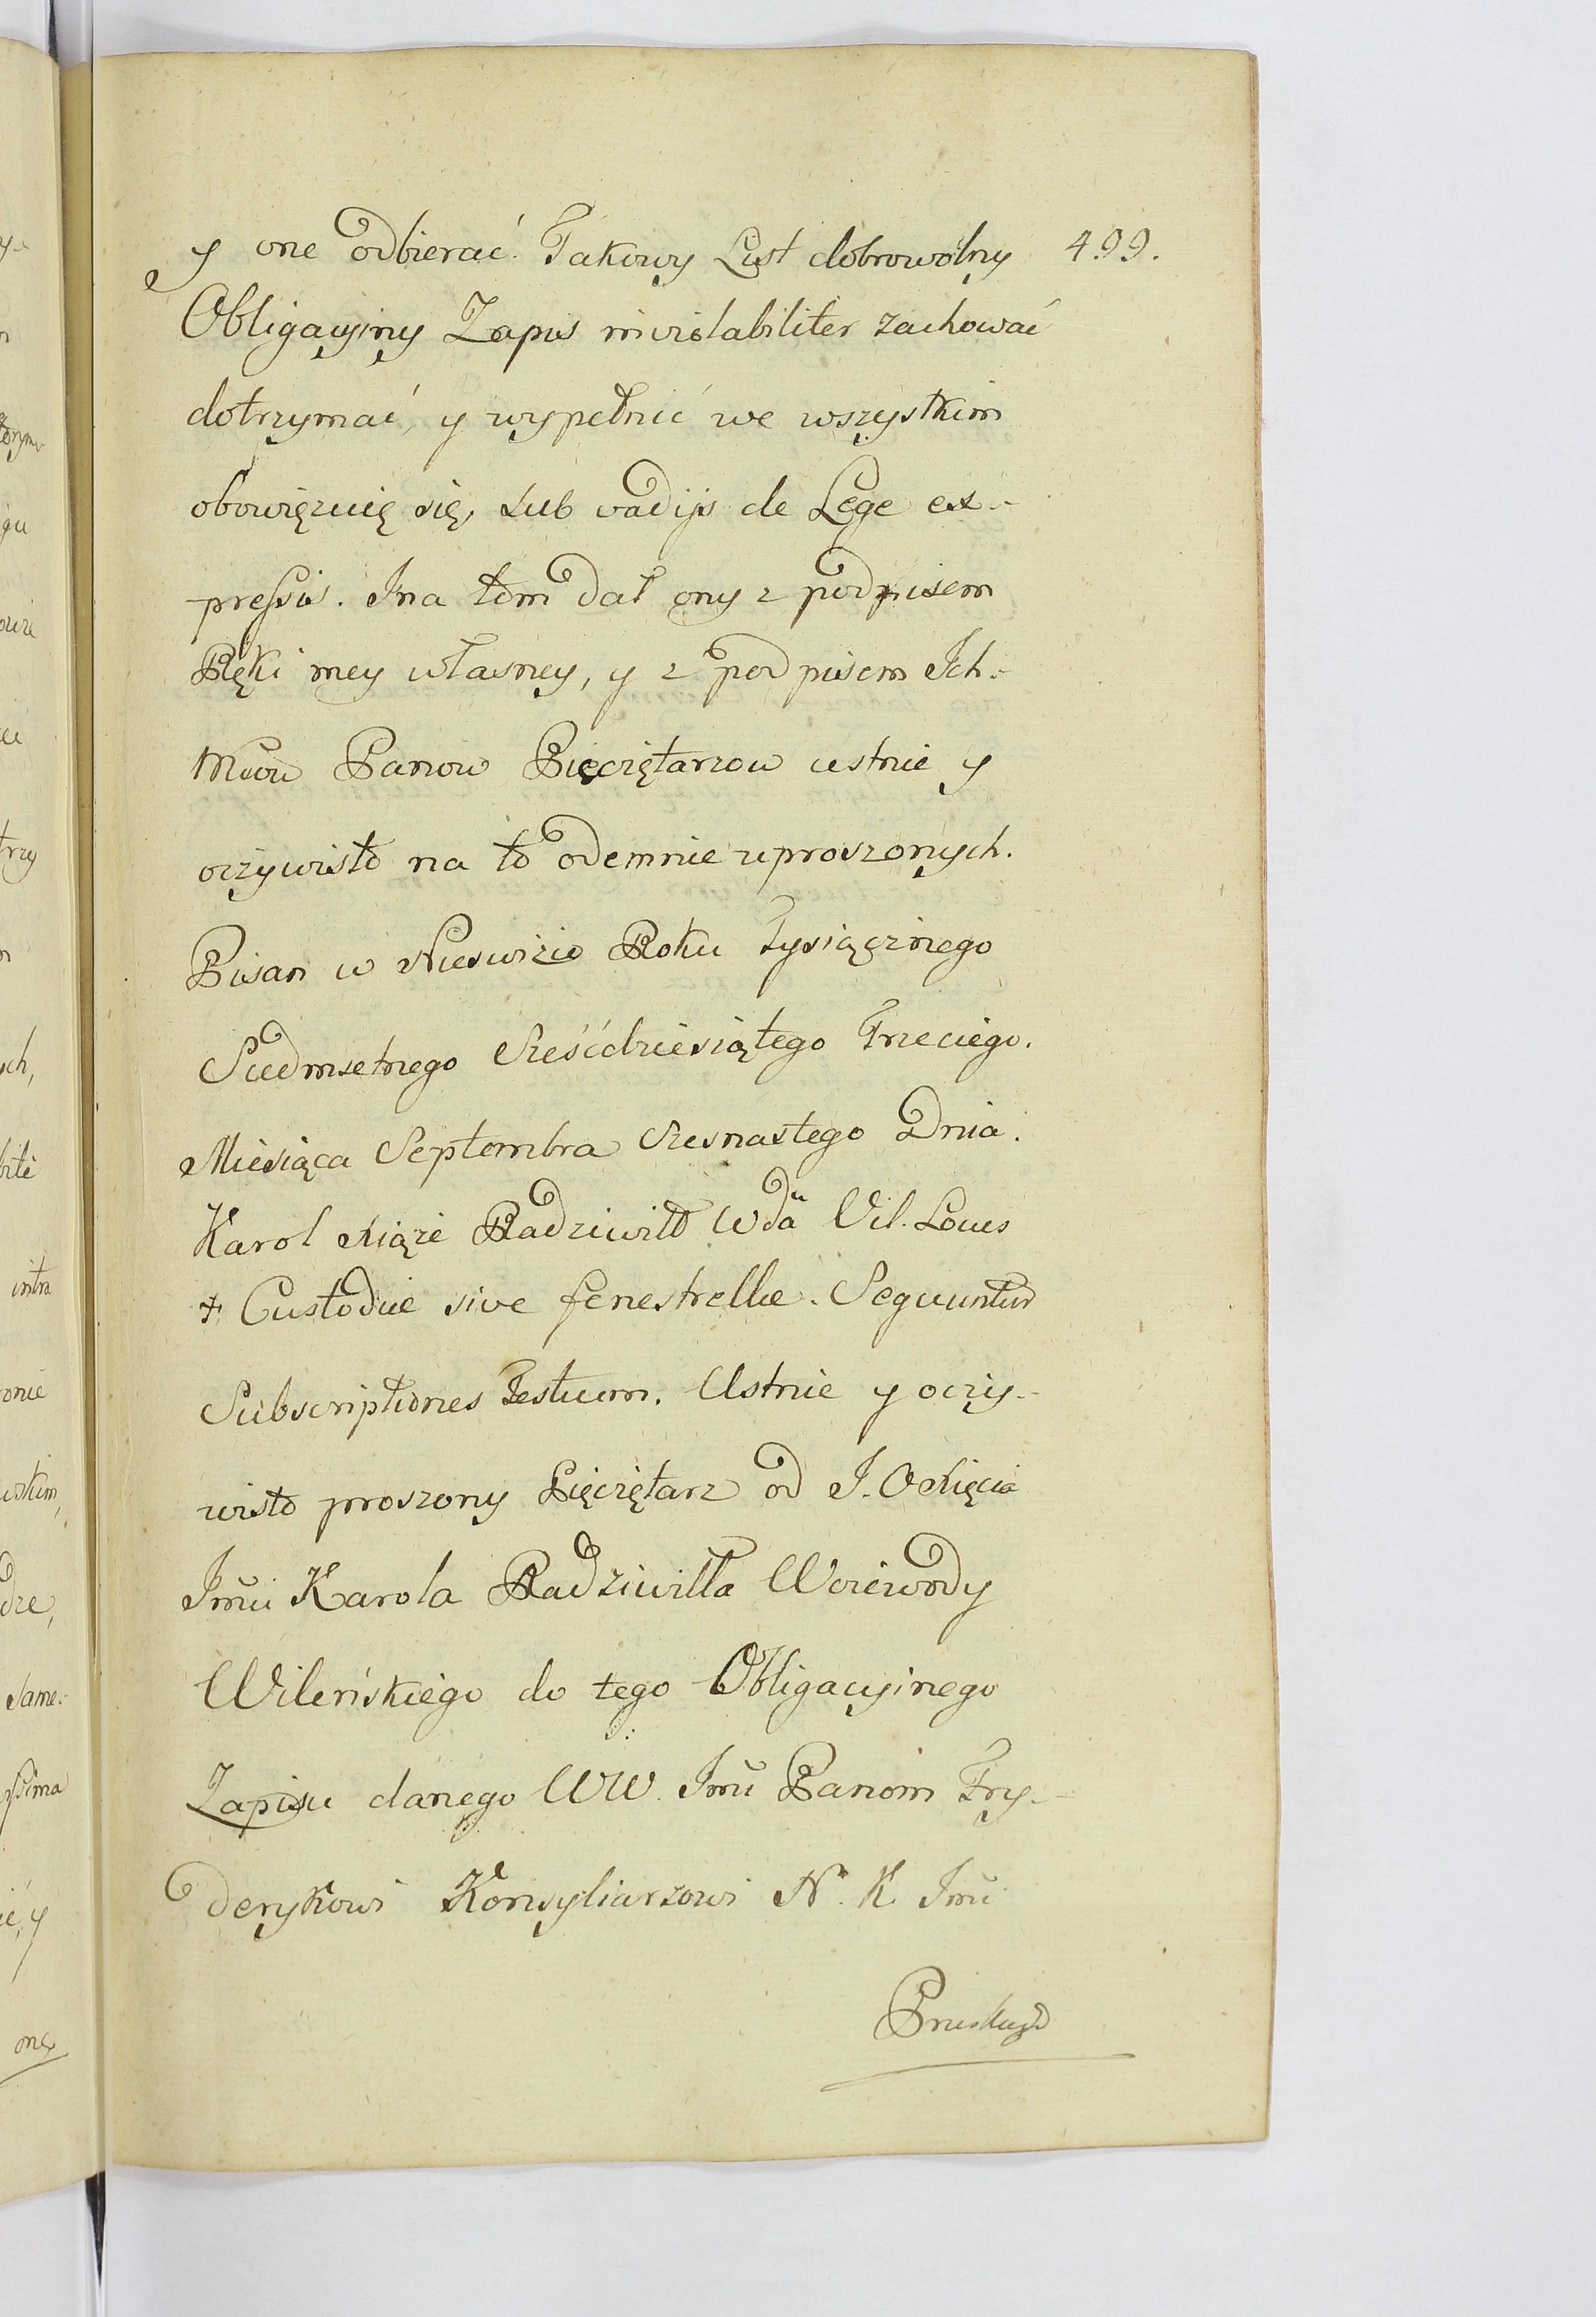 y one odbierać. Takowy List dobrowolny 499.
Obligacyiny Zapis inviolabiliter zachować
dotrzymać, y wypełnić we wszystkim
obowięzuię się, sub vadijs de Lege ex-
pressis. Ina tom dał ony z podpisem
Ręki mey własney, y z podpisem Ich-
Mciow Panow Pięczętarzow ustnie y
oczywisto na to odemnie uproszonych.
Pisan w Nieswiżu Roku Tysiącznego
Siedmsetnego Sześćdziesiątego Trzeciego.
Miesiąca Septembra Szesnastego Dnia.
Karol Xiąże Radziwiłł Wda Wil. Locus
+ Custodiæ sive fenestrellæ. Sequuntur
Subscriptiones Testium. Ustnie y oczy-
wisto proszony Pięczętarz od J. O Xięcia
Imci Karola Radziwiłła Woiewody
Wileńskiego do tego Obligacyinego
Zapisu danego WW. Imci Panom Fry-
derykowi Konsyliarzowi N. K. Imci